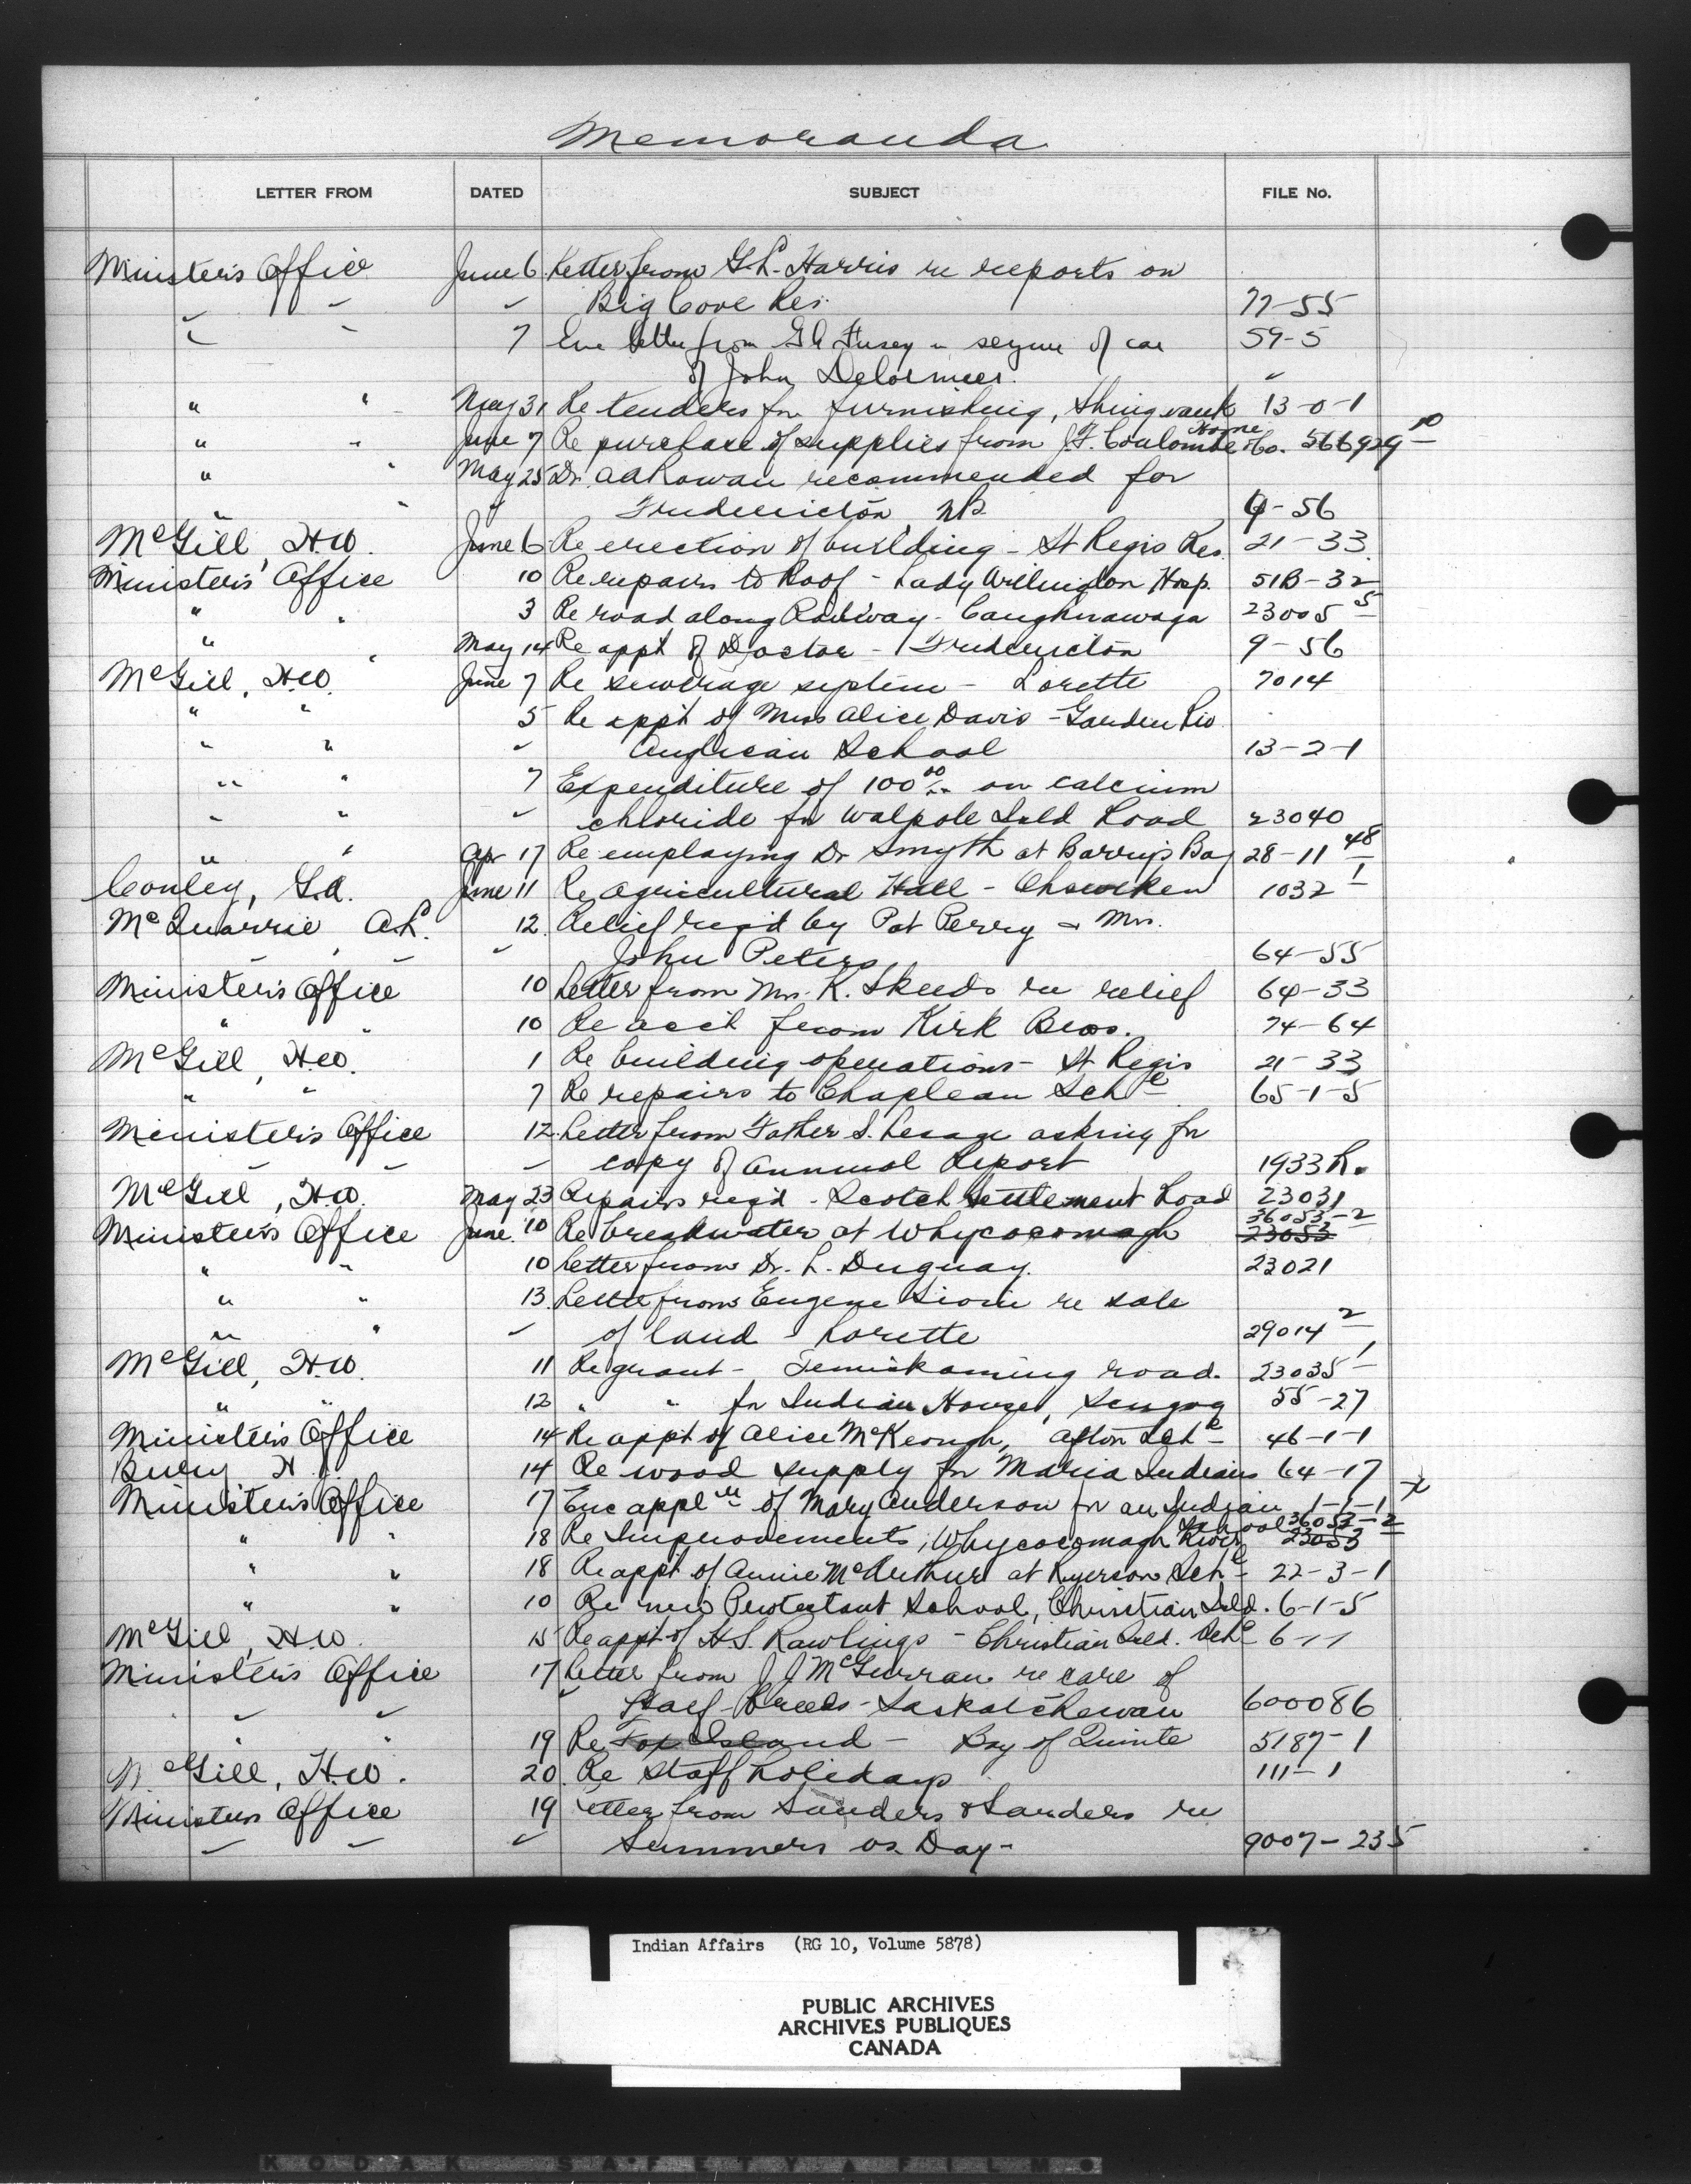 Memoranda
LETTER FROM DATED SUBJECT FILE No.
Minister's Office June 6 Letter from G.L. Harris re reports on
" " " Big Cove Res. 77-55
" " 7 Enc letter from of car 59-5
of John Delormier. "
" " May 31 Re tenders for furnishing, Shingwauk Home 13-0-1
" " June 7 Re purchase of supplies from J.F. Coulombe & Co. 566929 10
" " May 25 Dr. A A Rowan recommended for
" " " Fredericton NB. 9-56
McGill, H.W. June 6 Re erection of building - St Regis Res. 21-33
Minister's Office 10 Re repairs to Roof - Lady Willingdon Hosp. 51B-32
" " 3 Re road along Railway - Caughnawaga 23005 5
" " May 14 Re appt of Doctor - Fredericton 9-56
McGill, H.W. June 7 Re sewerage system - Lorette 7014
" " 5 Re appt of Miss Alice Davis - Garden Riv
" " " Anglican School 13-2-1
" " 7 Expenditure of 100 00 on calcium
" " " chloride for Walpole Isld Road 23040
" " Apr 17 Re employing Dr Smyth at Barry's Bay 28-11 48
Conley, G.A. June 11 Re Agricultural Hall - Ohsweken 1032 1
McQuarrie, A.L. 12 Relief req'd by Pat Perry & Mrs.
" " " John Peters 64-55
Minister's Office 10 Letter from Mrs. K. Skeeds re relief 64-33
" " 10 Re acct from Kirk Bros. 74-64
McGill, H.W. 1 Re building operations - St Regis 21-33
" " 7 Re repairs to Chapleau Schl 65-1-5
Minister's Office 12 Letter from Father S. Lesage asking for
" " " copy of Annual Report 1933R.
McGill, H.W. May 23 Repairs req'd - Scotch Settlement Road 23031
Minister's Office June 10 Re breakwater at Whycocomagh 36053-2 23053
" " 10 Letter from Dr. L. Duguay. 23021
" " 13 Letter from Eugene Sioui re sale
" " " of land - Lorette 29014 2
McGill, H.W. 11 Re grant - Temiskaming road. 23035 1
" " 12 " " for Indian Houses, Scugog 55-27
Minister's Office 14 Re appt of Alice McKeough, Afton Schl 46-1-1
Bury H. 14 Re wood supply for Maria Indians 64-17
Minister's Office 17 Enc applen of Mary Anderson for an Indian school 1-1-1 x
" " 18 Re Improvements, Whycocomagh River 36053-2 23053
" " 18 Re appt of Annie McArthur at Ryerson Schl 22-3-1
" " 10 Re new Protestant School, Christian Isld. 6-1-5
McGill, H.W. 15 Re appt of H.S. Rawlings - Christian Isld. Schl 6-1-1
Minister's Office 17 Letter from J J McGurran re care of
" " " Half-Breeds - Saskatchewan 600086
" " 19 Re Fox Island - Bay of Quinte 5187-1
McGill, H.W. 20. Re staff holidays 111-1
Ministers Office 19 Letter from Sanders & Sanders re
" " " Summers vs. Day - 9007-235
Indian Affairs (RG 10, Volume 5878)
PUBLIC ARCHIVES
ARCHIVES PUBLIQUES
CANADA
KODAK SAFETY FILM